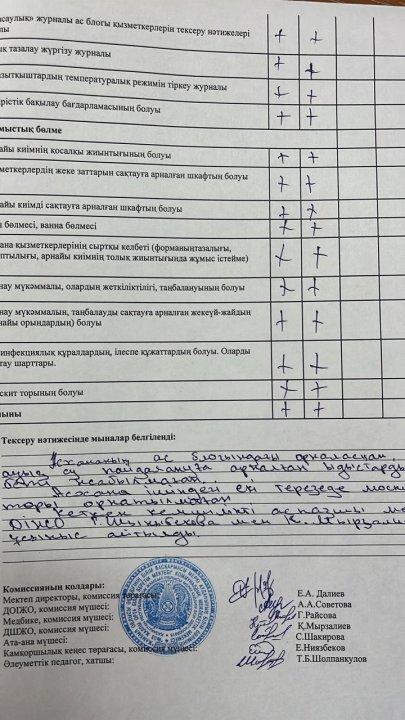 асаулық» журналы ас блогы қызметкерлерін тексеру нәтижелері
лы
ық тазалау жүргізу журналы
азытқыштардың температуралық режимін тіркеу журналы
ірістік бақылау бағдарламасының болуы
мыстық бөлме
айы киімнің қосалқы жиынтығының болуы
меткерлердің жеке заттарын сақтауға арналған шкафтың болуы
айы киімді сақтауға арналған шкафтың болуы
бөлмесі, ванна бөлмесі
ана қызметкерлерінің сыртқы келбеті (форманыңтазалығы,
птылығы, арнайы киімнің толық жиынтығында жұмыс істейме)
нау мүкәммалы, олардың жеткіліктілігі, таңбалануының болуы
нау мүкәммалын, таңбалауды сақтауға арналған жекеүй-жайдың
найы орындардың) болуы
инфекциялық құралдардың, ілеспе құжаттардың болуы. Оларды
тау шарттары.
скит торының болуы
ыны
Тексеру нәтижесінде мыналар белгіленді:
Асхананың ас блогындағы орналасқан,
ашық су пайдалануға арналған ыдыстарды
Асхана ішінде екі терезеде моски
торы орнатылмаған
Кеткен кемшілікті аспазшы ме
ДІЖО
ұсыныс айтылды.
Комиссияның қолдары:
Мектеп директоры, комиссия төрағасы: Е.А. Далиев
ДОІЖО, комиссия мүшесі: А.А.Советова
Медбике, комиссия мүшесі: Г.Райсова
ДШІЖО, комиссия мүшесі: Қ.Мырзалиев
Ата-ана мүшесі: С.Шакирова
Камқоршылық кеңес төрағасы, комиссия мүшесі: Е.Ниязбеков
Әлеуметтік педагог, хатшы: Т.Б.Шолпанкулов